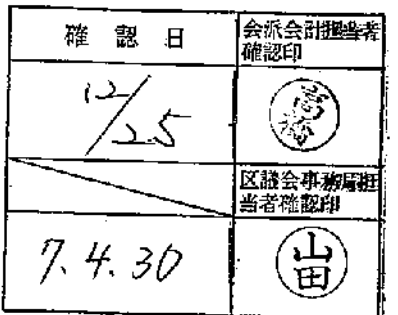 確認日
会派会計担当者
確認印
12/25
高橋
区議会事務局担
当者確認印
7.4.30
山田